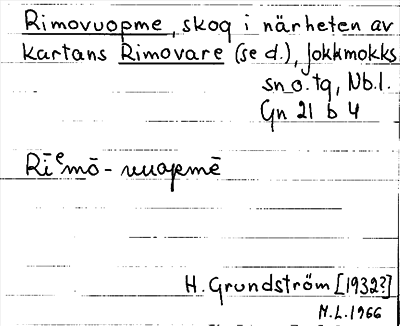 Rimovuopme, skog i närheten av
kartans Rimovare (se d.), Jokkmokks
sn o. tg, Nb.l.
Gn 21 b 4
Rīᵉmō - vuopmē
H. Grundström [1932?]
M.L. 1966